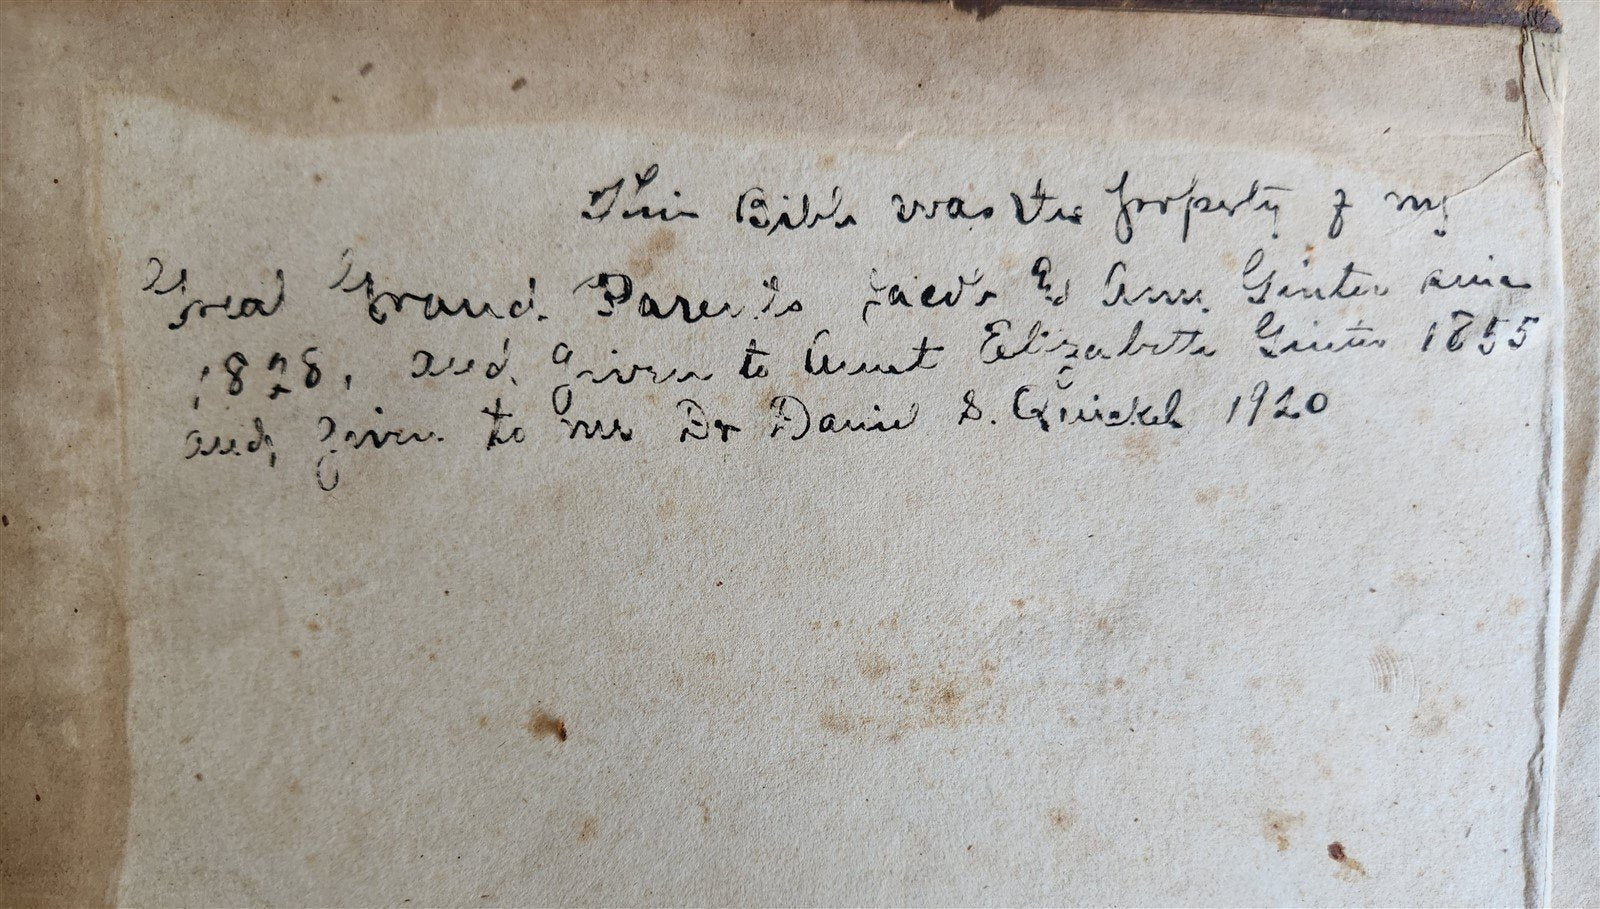 This Bible was the property of my
Great Grand Parents Jacob & Ann Ginter since
1828, and given to Aunt Elizabeth Ginter 1855
and given to me Dr Daniel S. Quickel 1920